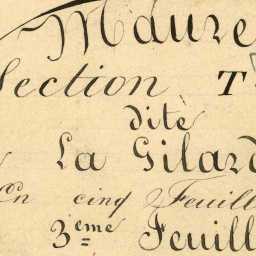 Maure
Section T
dite
La Gilard
En cinq Feuill
3eme Feuill